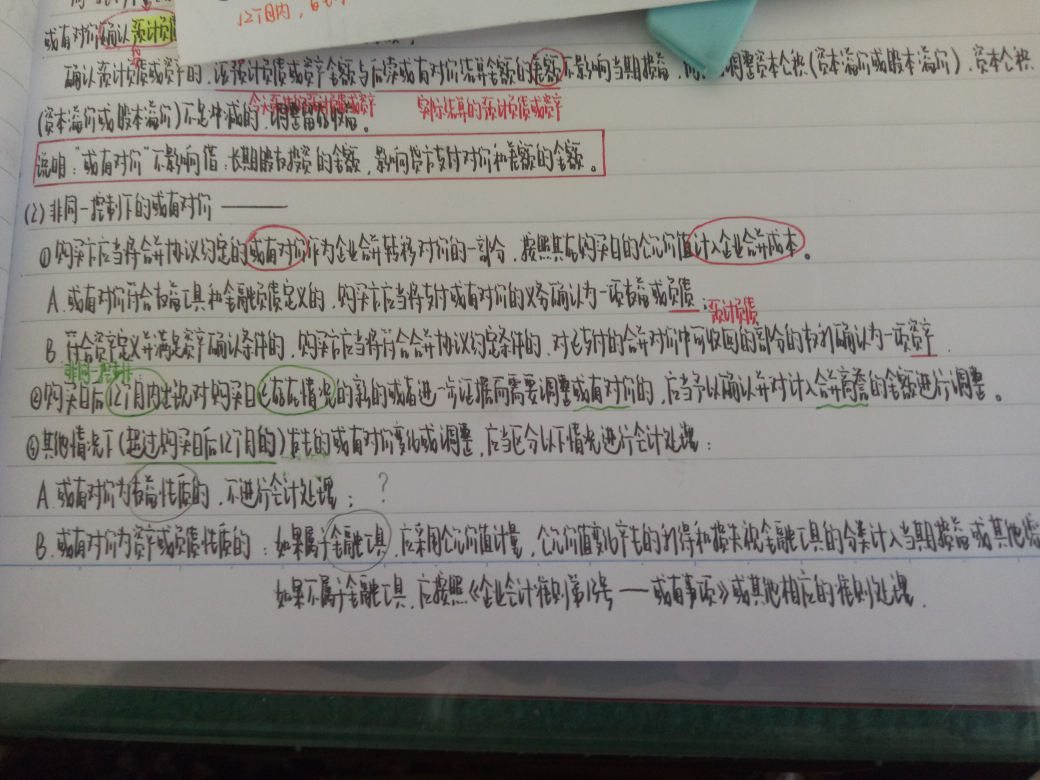 12个月内,
或有对价确认预计负债
确认预计负债或资产的,该预计负债或资产金额与后续或有对价结算金额的差额不影响当期损益,调整资本公积(资本溢价或股本溢价),资本公积
今天预估的预计负债或资产 实际结算的预计负债或资产
(资本溢价或股本溢价)不足冲减的,调整留存收益。
说明:“或有对价”不影响借:长期股权投资的金额,影响贷方支付对价和差额的金额。
(2)非同一控制下的或有对价 ——
①购买方应当将合并协议约定的或有对价作为企业合并转移对价的一部分,按照其在购买日的公允价值计入企业合并成本。
A.或有对价符合权益工具和金融负债定义的,购买方应当将支付或有对价的义务确认为一项权益或负债;
预计负债
B.符合资产定义并满足资产确认条件的,购买方应当将符合合并协议约定条件的,对已支付的合并对价中可收回的部分的权利确认为一项资产
非同一控制
②购买日后12个月内出现对购买日已存在情况的新的或者进一步证据而需要调整或有对价的,应当予以确认并对计入合并商誉的金额进行调整。
③其他情况下(超过购买日后12个月的)发生的或有对价变化或调整,应当区分以下情况进行会计处理:
A.或有对价为权益性质的,不进行会计处理; ?
B.或有对价为资产或负债性质的:如果属于金融工具,应采用公允价值计量,公允价值变化产生的利得和损失视金融工具的分类计入当期损益或其他综
如果不属于金融工具,应按照《企业会计准则第13号——或有事项》或其他相应的准则处理.